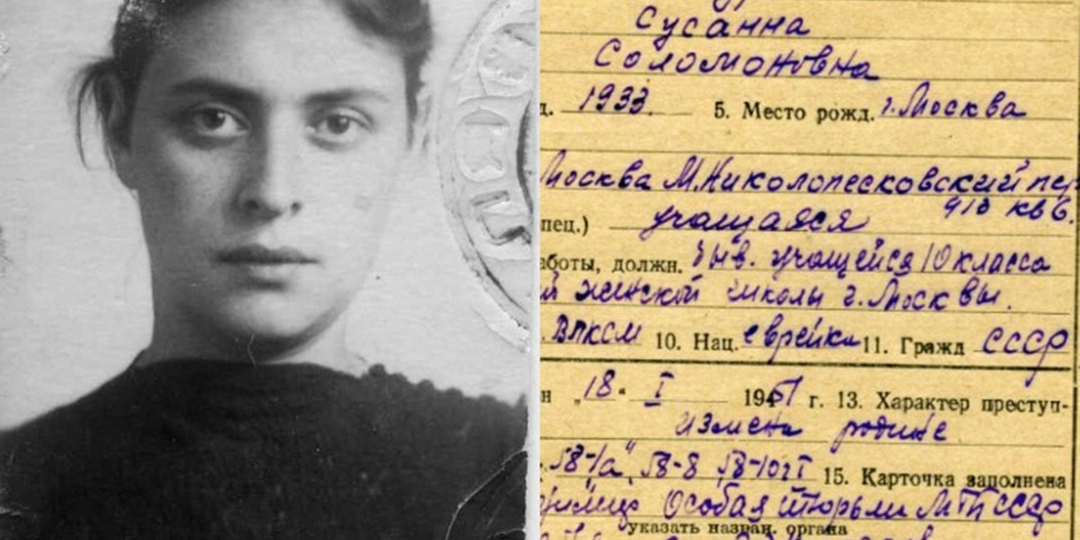 Сусанна
Соломоновна
д. 1933. 5. Место рожд. г. Москва
Москва М. Николопесковский пер
9/8 кв 6.
пец.) учащаяся
аботы, должн. быв. учащейся 10 класса
й женской школы г. Москвы.
ВЛКСМ 10. Нац. еврейка 11. Гражд СССР
н „18" I 1951 г. 13. Характер преступ-
измена родине
58-1а", 58-8 58-10 ч I 15. Карточка заполнена
Особая тюрьма МГБ СССР
указать назван. органа